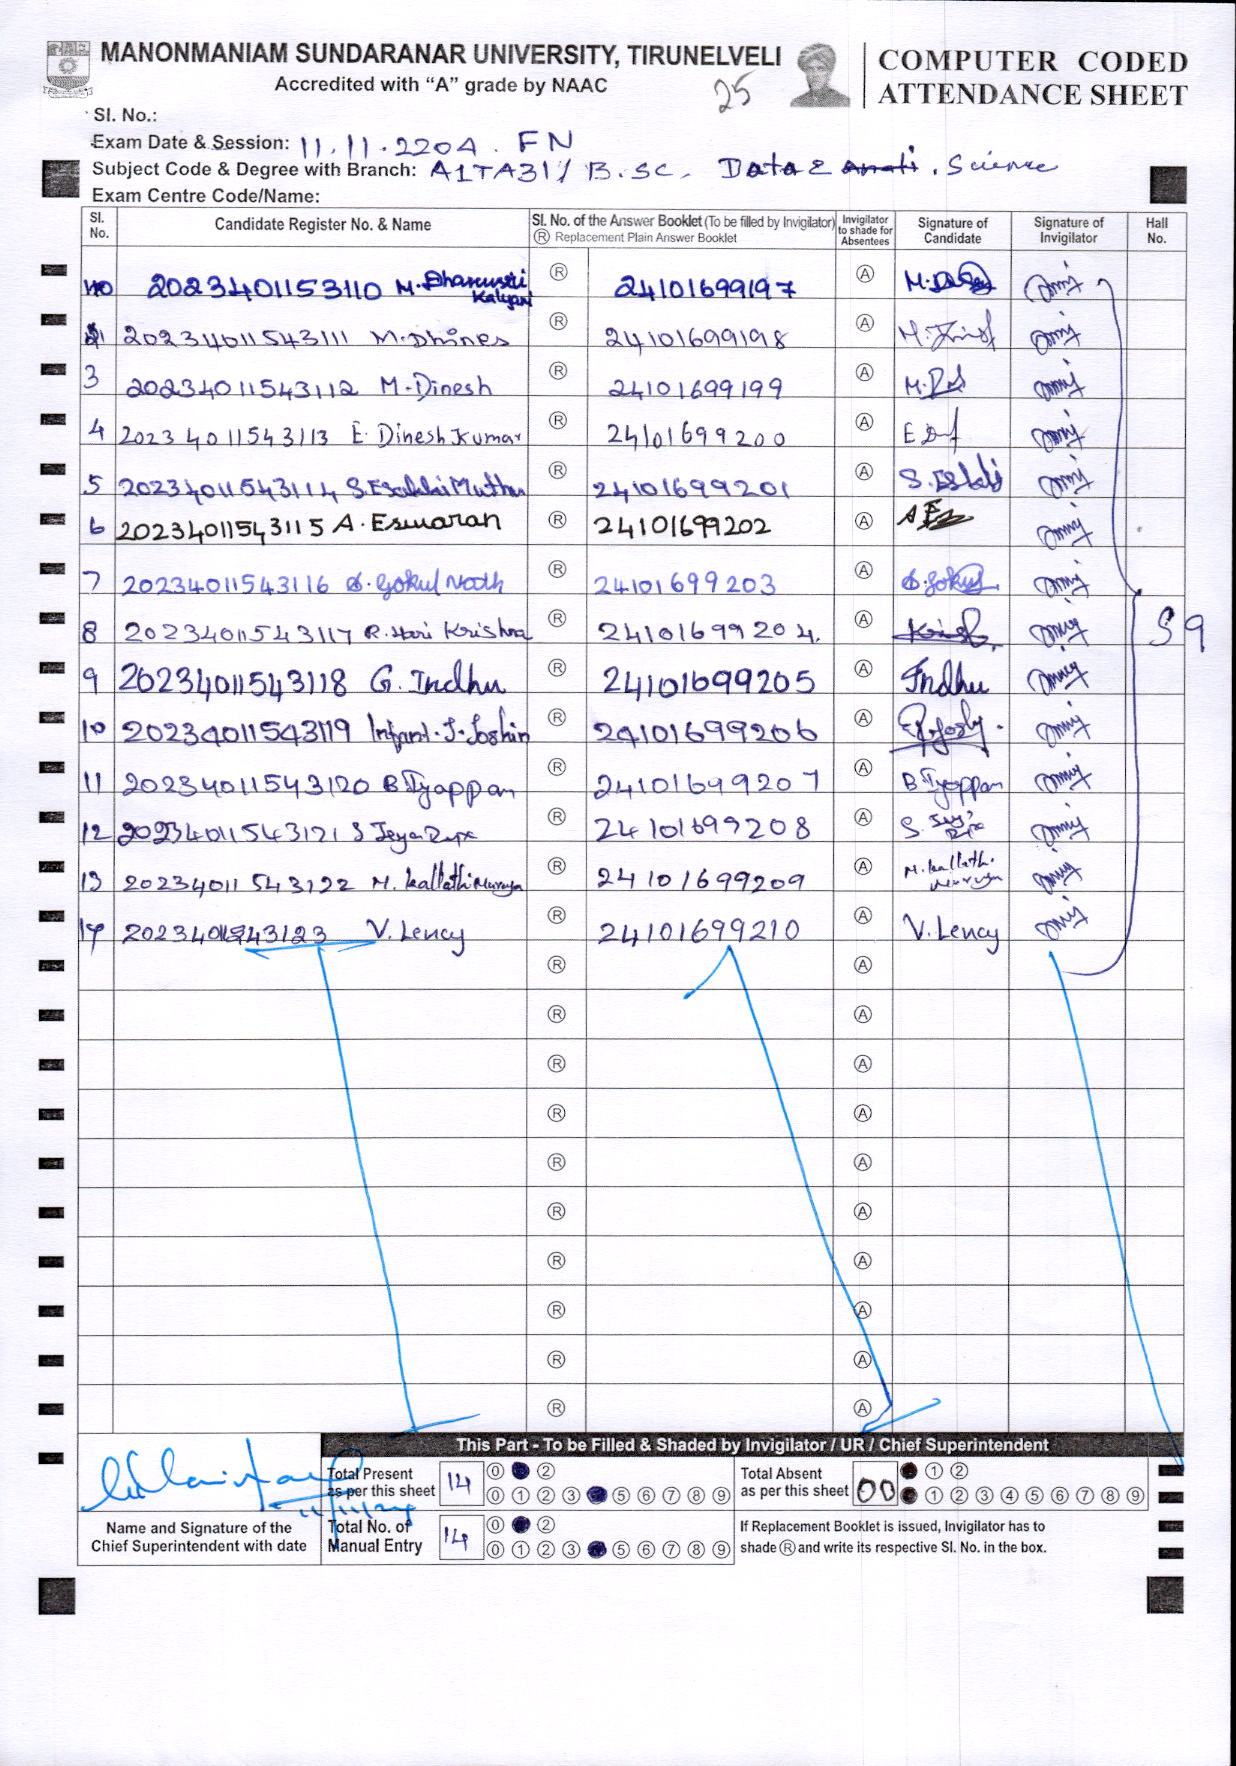 MANONMANIAM SUNDARANAR UNIVERSITY, TIRUNELVELI
Accredited with “A” grade by NAAC
25
COMPUTER CODED
ATTENDANCE SHEET
Sl. No.:
Exam Date & Session: 11.11.2204. FN
Subject Code & Degree with Branch: A1TA31/ B.sc. Data & Science
Exam Centre Code/Name:
Sl. No. Candidate Register No. & Name Sl. No. of the Answer Booklet (To be filled by Invigilator) Ⓡ Replacement Plain Answer Booklet Invigilator to shade for Absentees Signature of Candidate Signature of Invigilator Hall No.
2023401153110 M. Kalyani Ⓡ 24101699197 Ⓐ
20234011543111 M. Dhines Ⓡ 24101699198 Ⓐ
3 20234011543112 M. Dinesh Ⓡ 24101699199 Ⓐ
4 20234011543113 E. Dinesh Kumar Ⓡ 24101699200 Ⓐ
5 20234011543114 S. Esakki Muthu Ⓡ 24101699201 Ⓐ
6 20234011543115 A. Eswaran Ⓡ 24101699202 Ⓐ
7 20234011543116 Gokul Nath Ⓡ 24101699203 Ⓐ
8 20234011543117 R. Hari Krishna Ⓡ 24101699204. Ⓐ S9
9 20234011543118 G. Indhu Ⓡ 24101699205 Ⓐ Indhu
10 20234011543119 Infant. J. Joshin Ⓡ 24101699206 Ⓐ
11 20234011543120 B. Iyappan Ⓡ 24101699207 Ⓐ B Iyappan
12 20234011543121 S Jeya Ⓡ 24101699208 Ⓐ
13 20234011543122 M. Ⓡ 24101699209 Ⓐ
14 20234011543123 V. Lency Ⓡ 24101699210 Ⓐ V. Lency
Ⓡ Ⓐ
Ⓡ Ⓐ
Ⓡ Ⓐ
Ⓡ Ⓐ
Ⓡ Ⓐ
Ⓡ Ⓐ
Ⓡ Ⓐ
Ⓡ Ⓐ
Ⓡ Ⓐ
Ⓡ Ⓐ
This Part - To be Filled & Shaded by Invigilator / UR / Chief Superintendent
Total Present 14 0 2
as per this sheet 0 1 2 3 5 6 7 8 9
Total Absent 00 1 2
as per this sheet 1 2 3 4 5 6 7 8 9
Name and Signature of the
Chief Superintendent with date
Total No. of 14 0 2
Manual Entry 0 1 2 3 5 6 7 8 9
If Replacement Booklet is issued, Invigilator has to
shade Ⓡ and write its respective Sl. No. in the box.